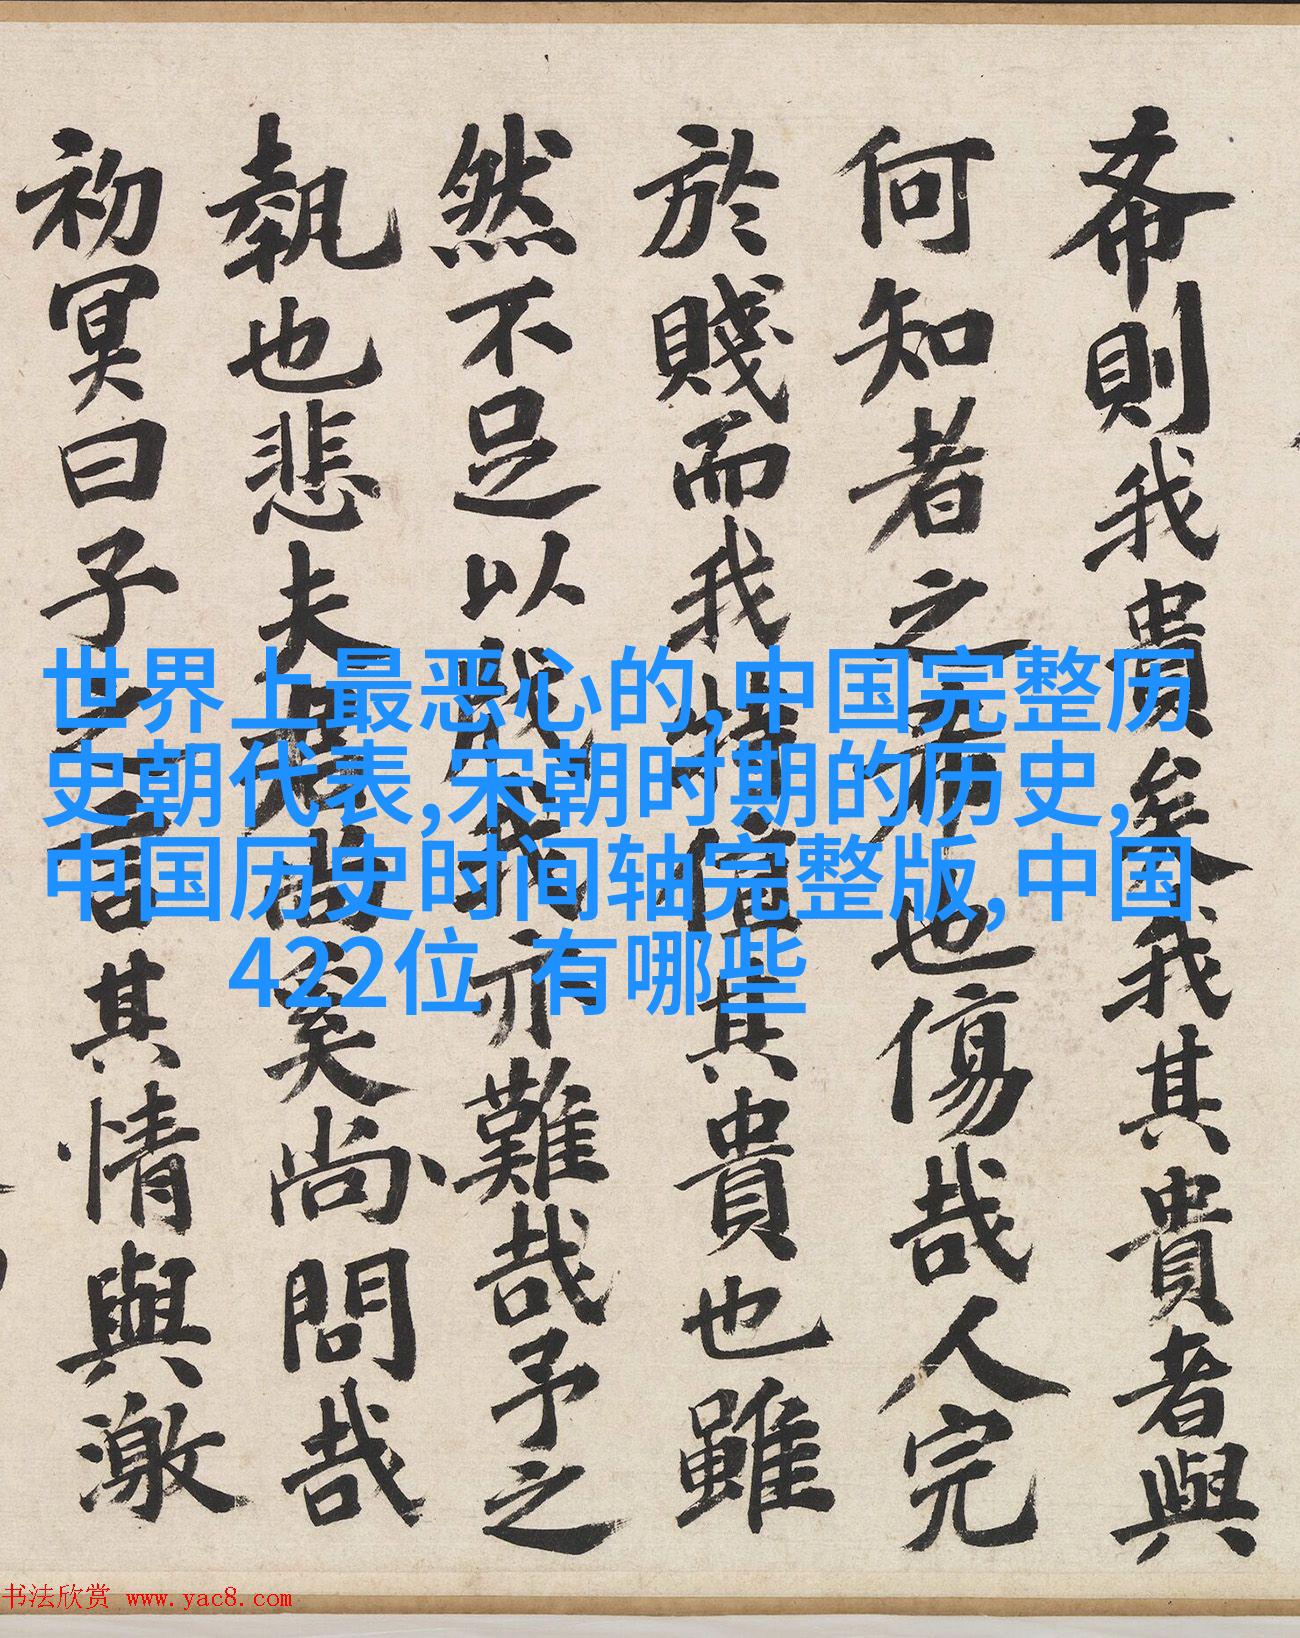 希則我貴矣我其貴者與
何知者之希也傷哉人完
於賤而我特值其貴也雖
然不足以戰我亦難哉予之
執也悲夫是故奚尚問哉
初冥曰子之言其情與激
世界上最恶心的,中国完整历
史朝代表,宋朝时期的历史,
中国历史时间轴完整版,中国
422位 有哪些
书法欣赏 www.yac8.com